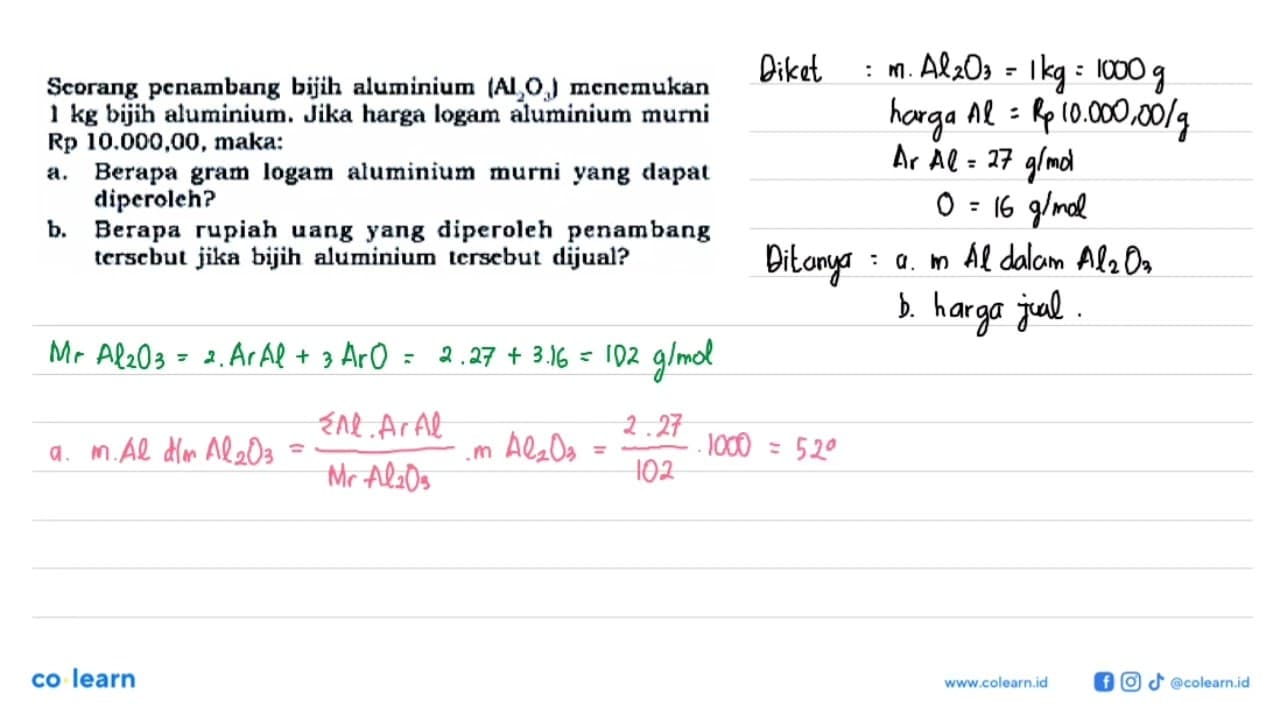 Seorang penambang bijih aluminium (Al₂O₃) menemukan
1 kg bijih aluminium. Jika harga logam aluminium murni
Rp 10.000,00, maka:
a. Berapa gram logam aluminium murni yang dapat
diperoleh?
b. Berapa rupiah uang yang diperoleh penambang
tersebut jika bijih aluminium tersebut dijual?
Diket : m. Al₂O₃ = 1 kg = 1000 g
harga Al = Rp 10.000,00/g
Ar Al = 27 g/mol
O = 16 g/mol
Ditanya : a. m Al dalam Al₂O₃
b. harga jual .
Mr Al₂O₃ = 2. Ar Al + 3 Ar O = 2 . 27 + 3.16 = 102 g/mol
a. m. Al dlm Al₂O₃ = ΣAl . Ar Al / Mr Al₂O₃ . m Al₂O₃ = 2 . 27 / 102 . 1000 = 520
co learn
www.colearn.id
@colearn.id